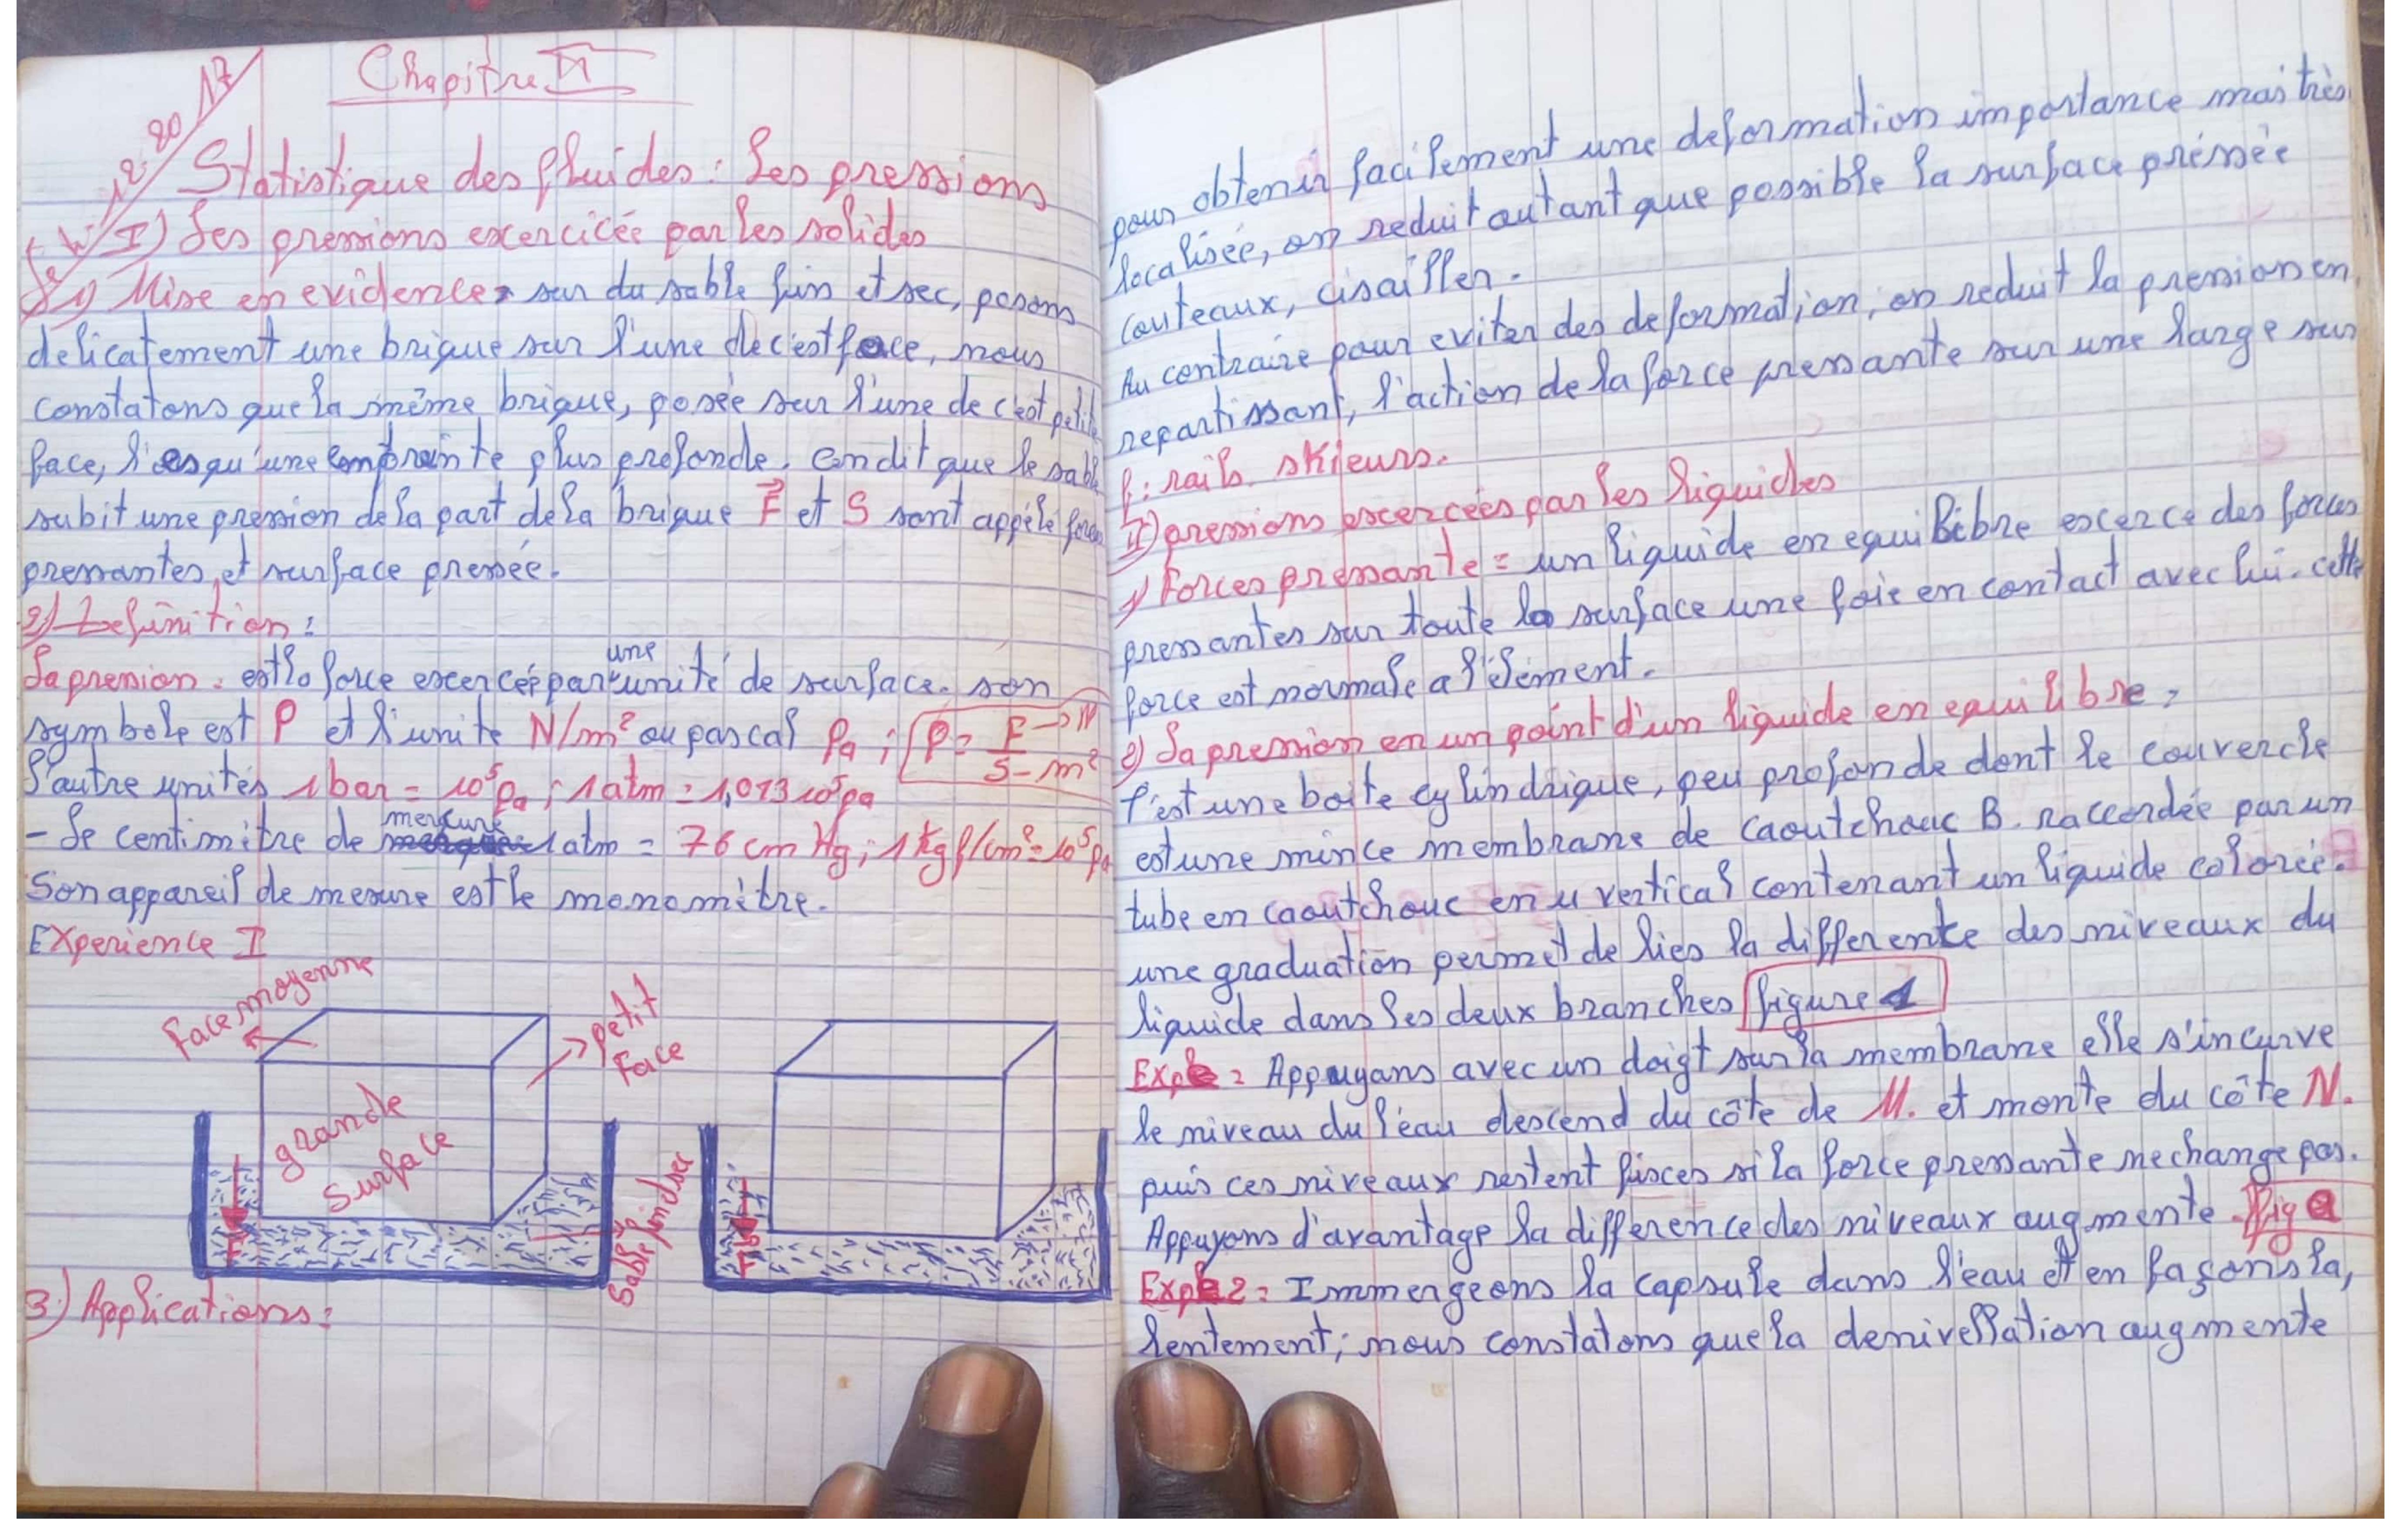 Chapitre VI
Statistique des fluides : Les pressions
I) Les pressions excercicée par les solides
1) Mise en evidence, sur du sable fin et sec, posons
delicatement une brique sur l'une de c'est face, nous
constatons que la même brique, posée sur l'une de c'est petite
face, plus profonde. on dit que le sable
subit une pression de la part de la brique F et S sont appélé forces
pressantes, et surface pressée.
2) Definition :
La pression : est la force excercée par une unité de surface. son
symbole est P et l'unité N/m² ou pascal Pa ; P = F → N / S - m²
L'autre unités 1 bar = 10⁵ Pa ; 1 atm = 1,013 10⁵ Pa
- Le centimètre de mercure 1 atm = 76 cm Hg ; 1 Kgf/cm² = 10⁵ Pa
Son appareil de mesure est le monomètre.
EXperience I
Face moyenne
petit
Face
grande
surface
Sable fin d sec
3) Applications :
pour obtenir facilement une deformation importance mais très
localisée, on reduit autant que possible la surface préssée
couteaux, cisailler.
Au contraire pour eviter des deformation, on reduit la pression en
repartissant, l'action de la force pressante sur une large sur
f : rails. skieurs.
II) pressions excercées par les liquides
1) Forces pressante = un liquide en equilibre excerce des forces
pressantes sur toute la surface une fois en contact avec lui. cette
force est normale a l'élement.
2) La pression en un point d'un liquide en equilibre :
c'est une boite cylindrique, peu profonde dont le couvercle
est une mince membrane de caoutchouc B. raccordée par un
tube en caoutchouc en u vertical contenant un liquide colorée.
une graduation permet de lies la differente des niveaux du
liquide dans les deux branches figure 1
Expe : Appuyans avec un doigt sur la membrane elle s'incurve
le niveau du l'éau descend du côte de M. et monte du côte N.
puis ces niveaux restent fisces si la force pressante ne change pas.
Appuyons d'avantage la difference des niveaux augmente. fig
Expe 2 : Immergeons la capsule dans l'eau et en façons la,
lentement ; nous constatons que la denivellation augmente